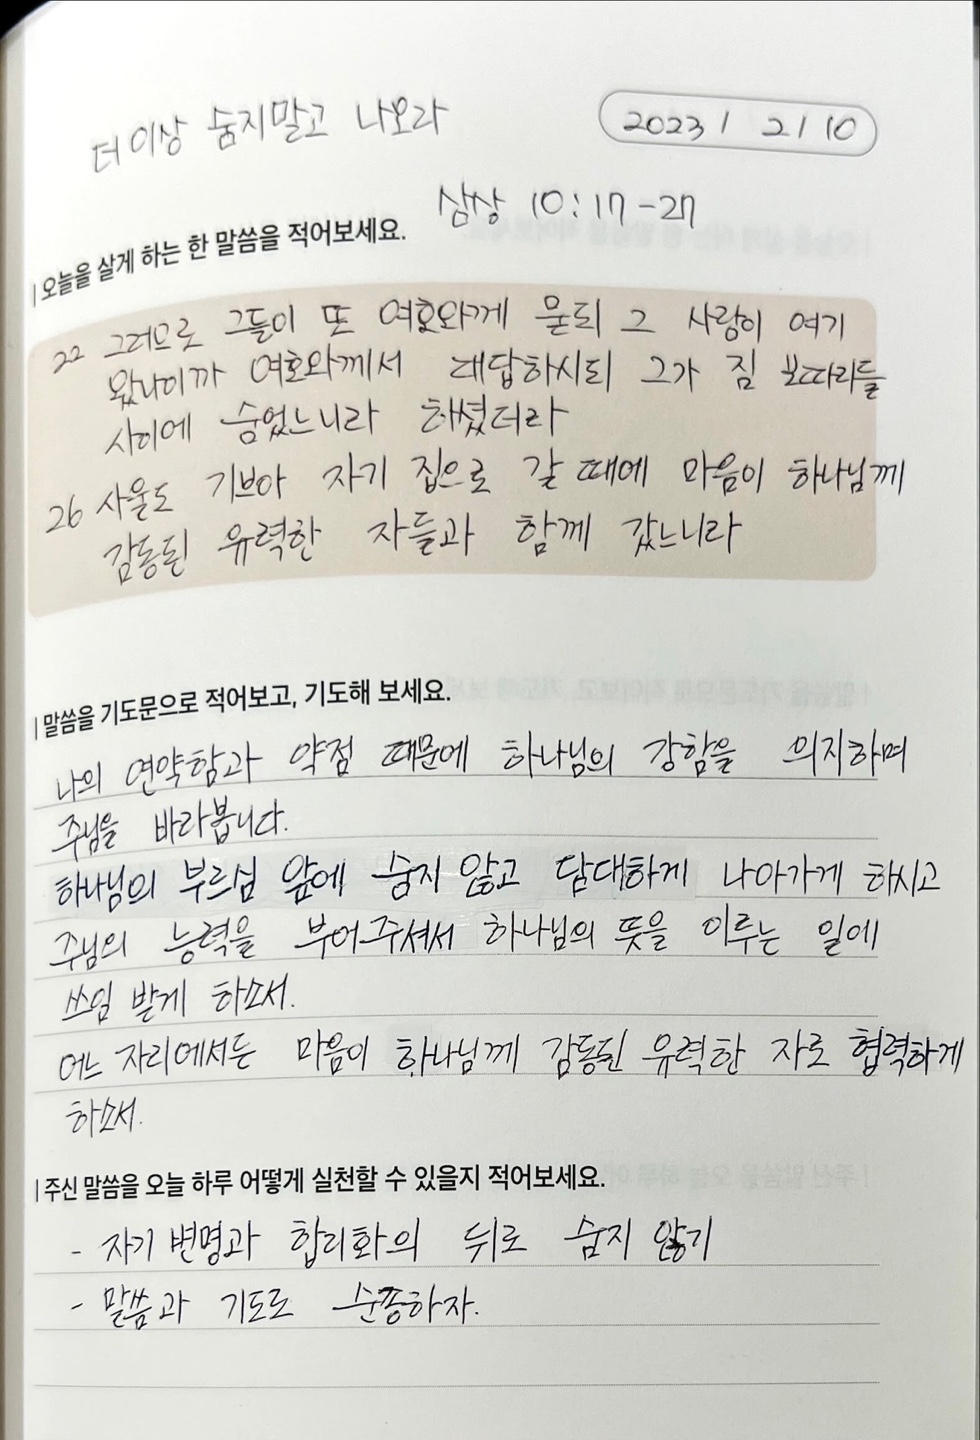 더 이상 숨지말고 나오라
2023 / 2 / 10
삼상 10:17-27
오늘을 살게 하는 한 말씀을 적어보세요.
22 그러므로 그들이 또 여호와께 묻되 그 사람이 여기
왔나이까 여호와께서 대답하시되 그가 짐 보따리들
사이에 숨었느니라 하셨더라
26 사울도 기브아 자기 집으로 갈 때에 마음이 하나님께
감동된 유력한 자들과 함께 갔느니라
말씀을 기도문으로 적어보고, 기도해 보세요.
나의 연약함과 약점 때문에 하나님의 강함을 의지하며
주님을 바라봅니다.
하나님의 부르심 앞에 숨지 않고 담대하게 나아가게 하시고
주님의 능력을 부어주셔서 하나님의 뜻을 이루는 일에
쓰임 받게 하소서.
어느 자리에서든 마음이 하나님께 감동된 유력한 자로 협력하게
하소서.
주신 말씀을 오늘 하루 어떻게 실천할 수 있을지 적어보세요.
- 자기 변명과 합리화의 뒤로 숨지 않기
- 말씀과 기도로 순종하자.